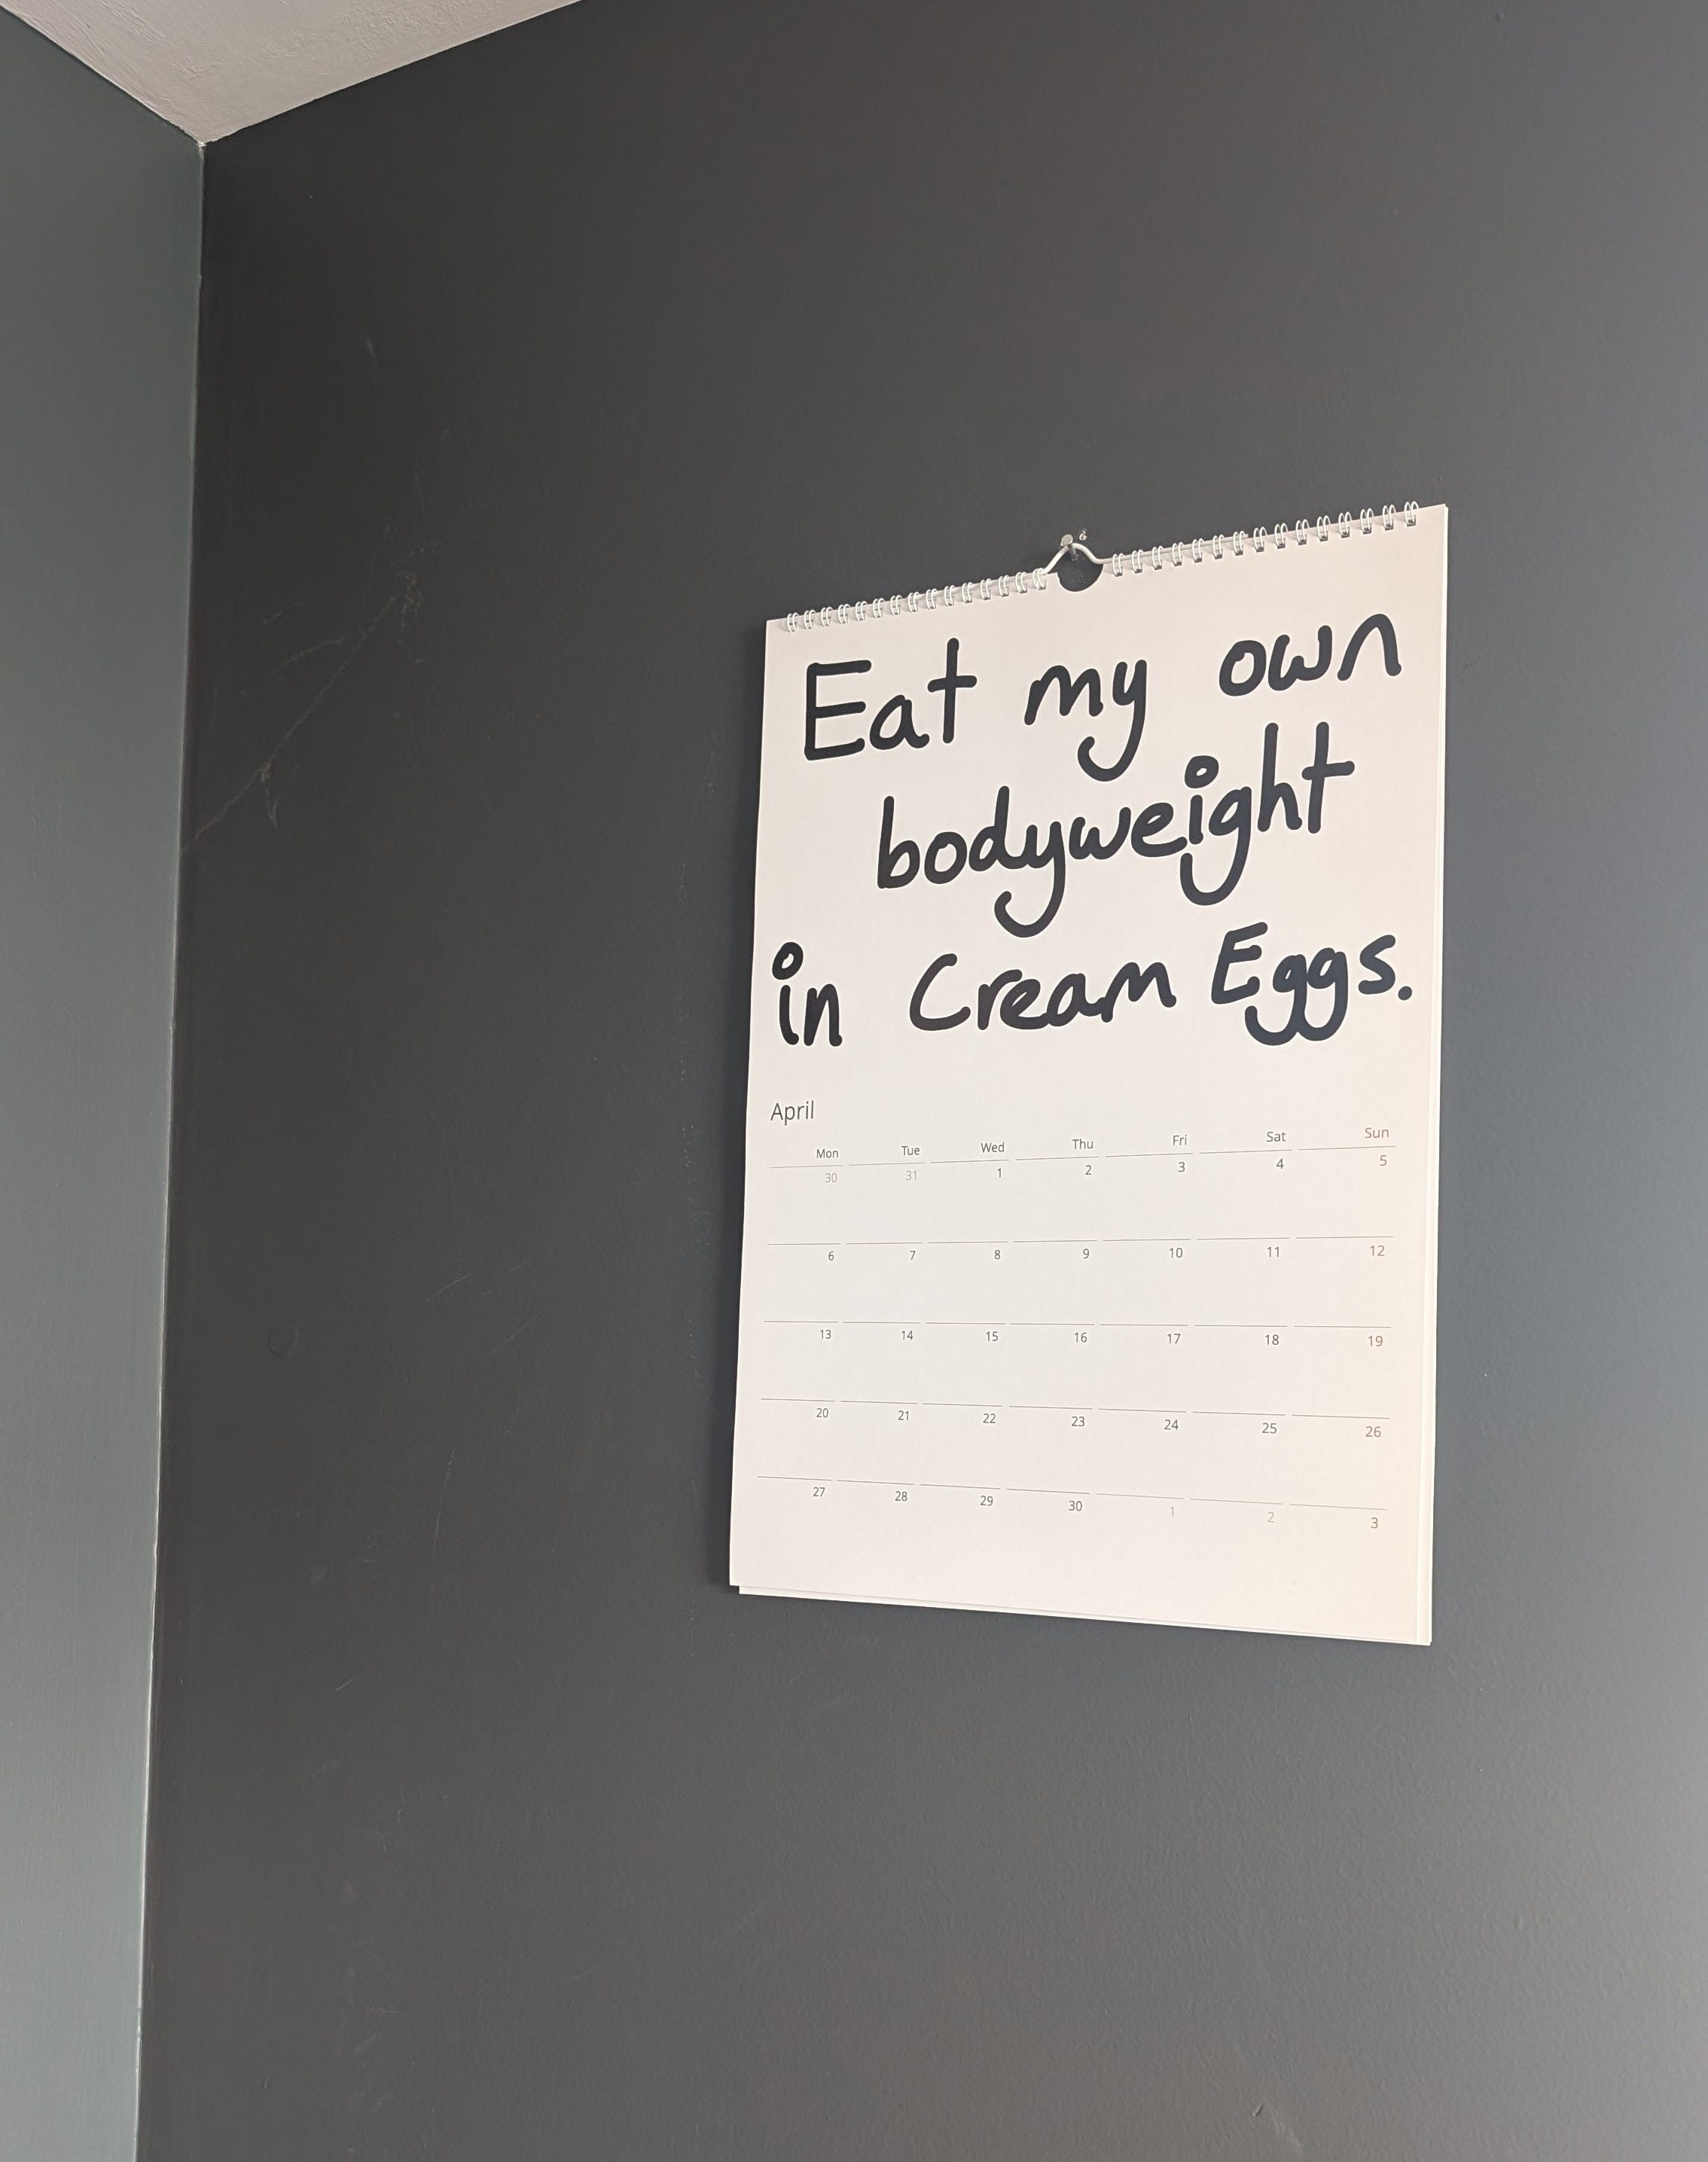 Eat my own
bodyweight
in Cream Eggs.
April
Mon Tue Wed Thu Fri Sat Sun
30 31 1 2 3 4 5
6 7 8 9 10 11 12
13 14 15 16 17 18 19
20 21 22 23 24 25 26
27 28 29 30 1 2 3